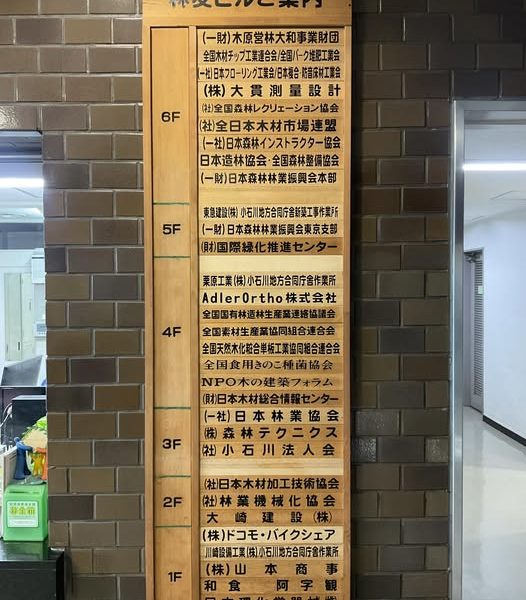 林友ビルご案内
6F
(一財)木原営林大和事業財団
全国木材チップ工業連合会/全国バーク堆肥工業会
(一社)日本フローリング工業会/日本複合・防音床材工業会
(株)大貫測量設計
(社)全国森林レクリエーション協会
(社)全日本木材市場連盟
(一社)日本森林インストラクター協会
日本造林協会・全国森林整備協会
(一財)日本森林林業振興会本部
5F
東急建設(株)小石川地方合同庁舎新築工事作業所
(一財)日本森林林業振興会東京支部
(財)国際緑化推進センター
4F
栗原工業(株)小石川地方合同庁舎作業所
AdlerOrtho株式会社
全国国有林造林生産業連絡協議会
全国素材生産業協同組合連合会
全国天然木化粧合単板工業協同組合連合会
全国食用きのこ種菌協会
NPO木の建築フォラム
(財)日本木材総合情報センター
3F
(一社)日本林業協会
(株)森林テクニクス
(社)小石川法人会
2F
(社)日本木材加工技術協会
(社)林業機械化協会
大崎建設(株)
1F
(株)ドコモ・バイクシェア
川崎設備工業(株)小石川地方合同庁舎作業所
(株)山本商事
和食 阿字観
募金箱